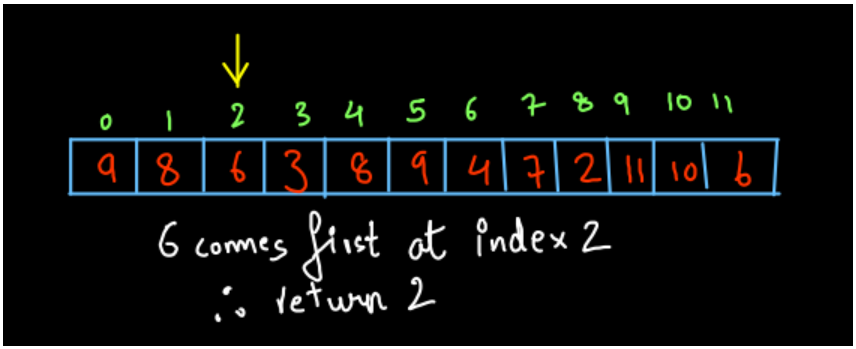 0 1 2 3 4 5 6 7 8 9 10 11
9 8 6 3 8 9 4 7 2 11 10 6
6 comes first at index 2
∴ return 2